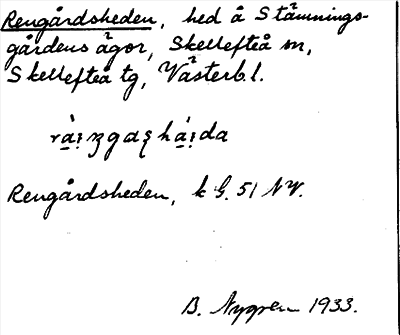 Rengårdsheden, hed å Stämnings-
gårdens ägor, Skellefteå sn,
Skellefteå tg, Västerb. l.
Rengårdsheden, k G. 51 NV.
B. Nygren 1933.